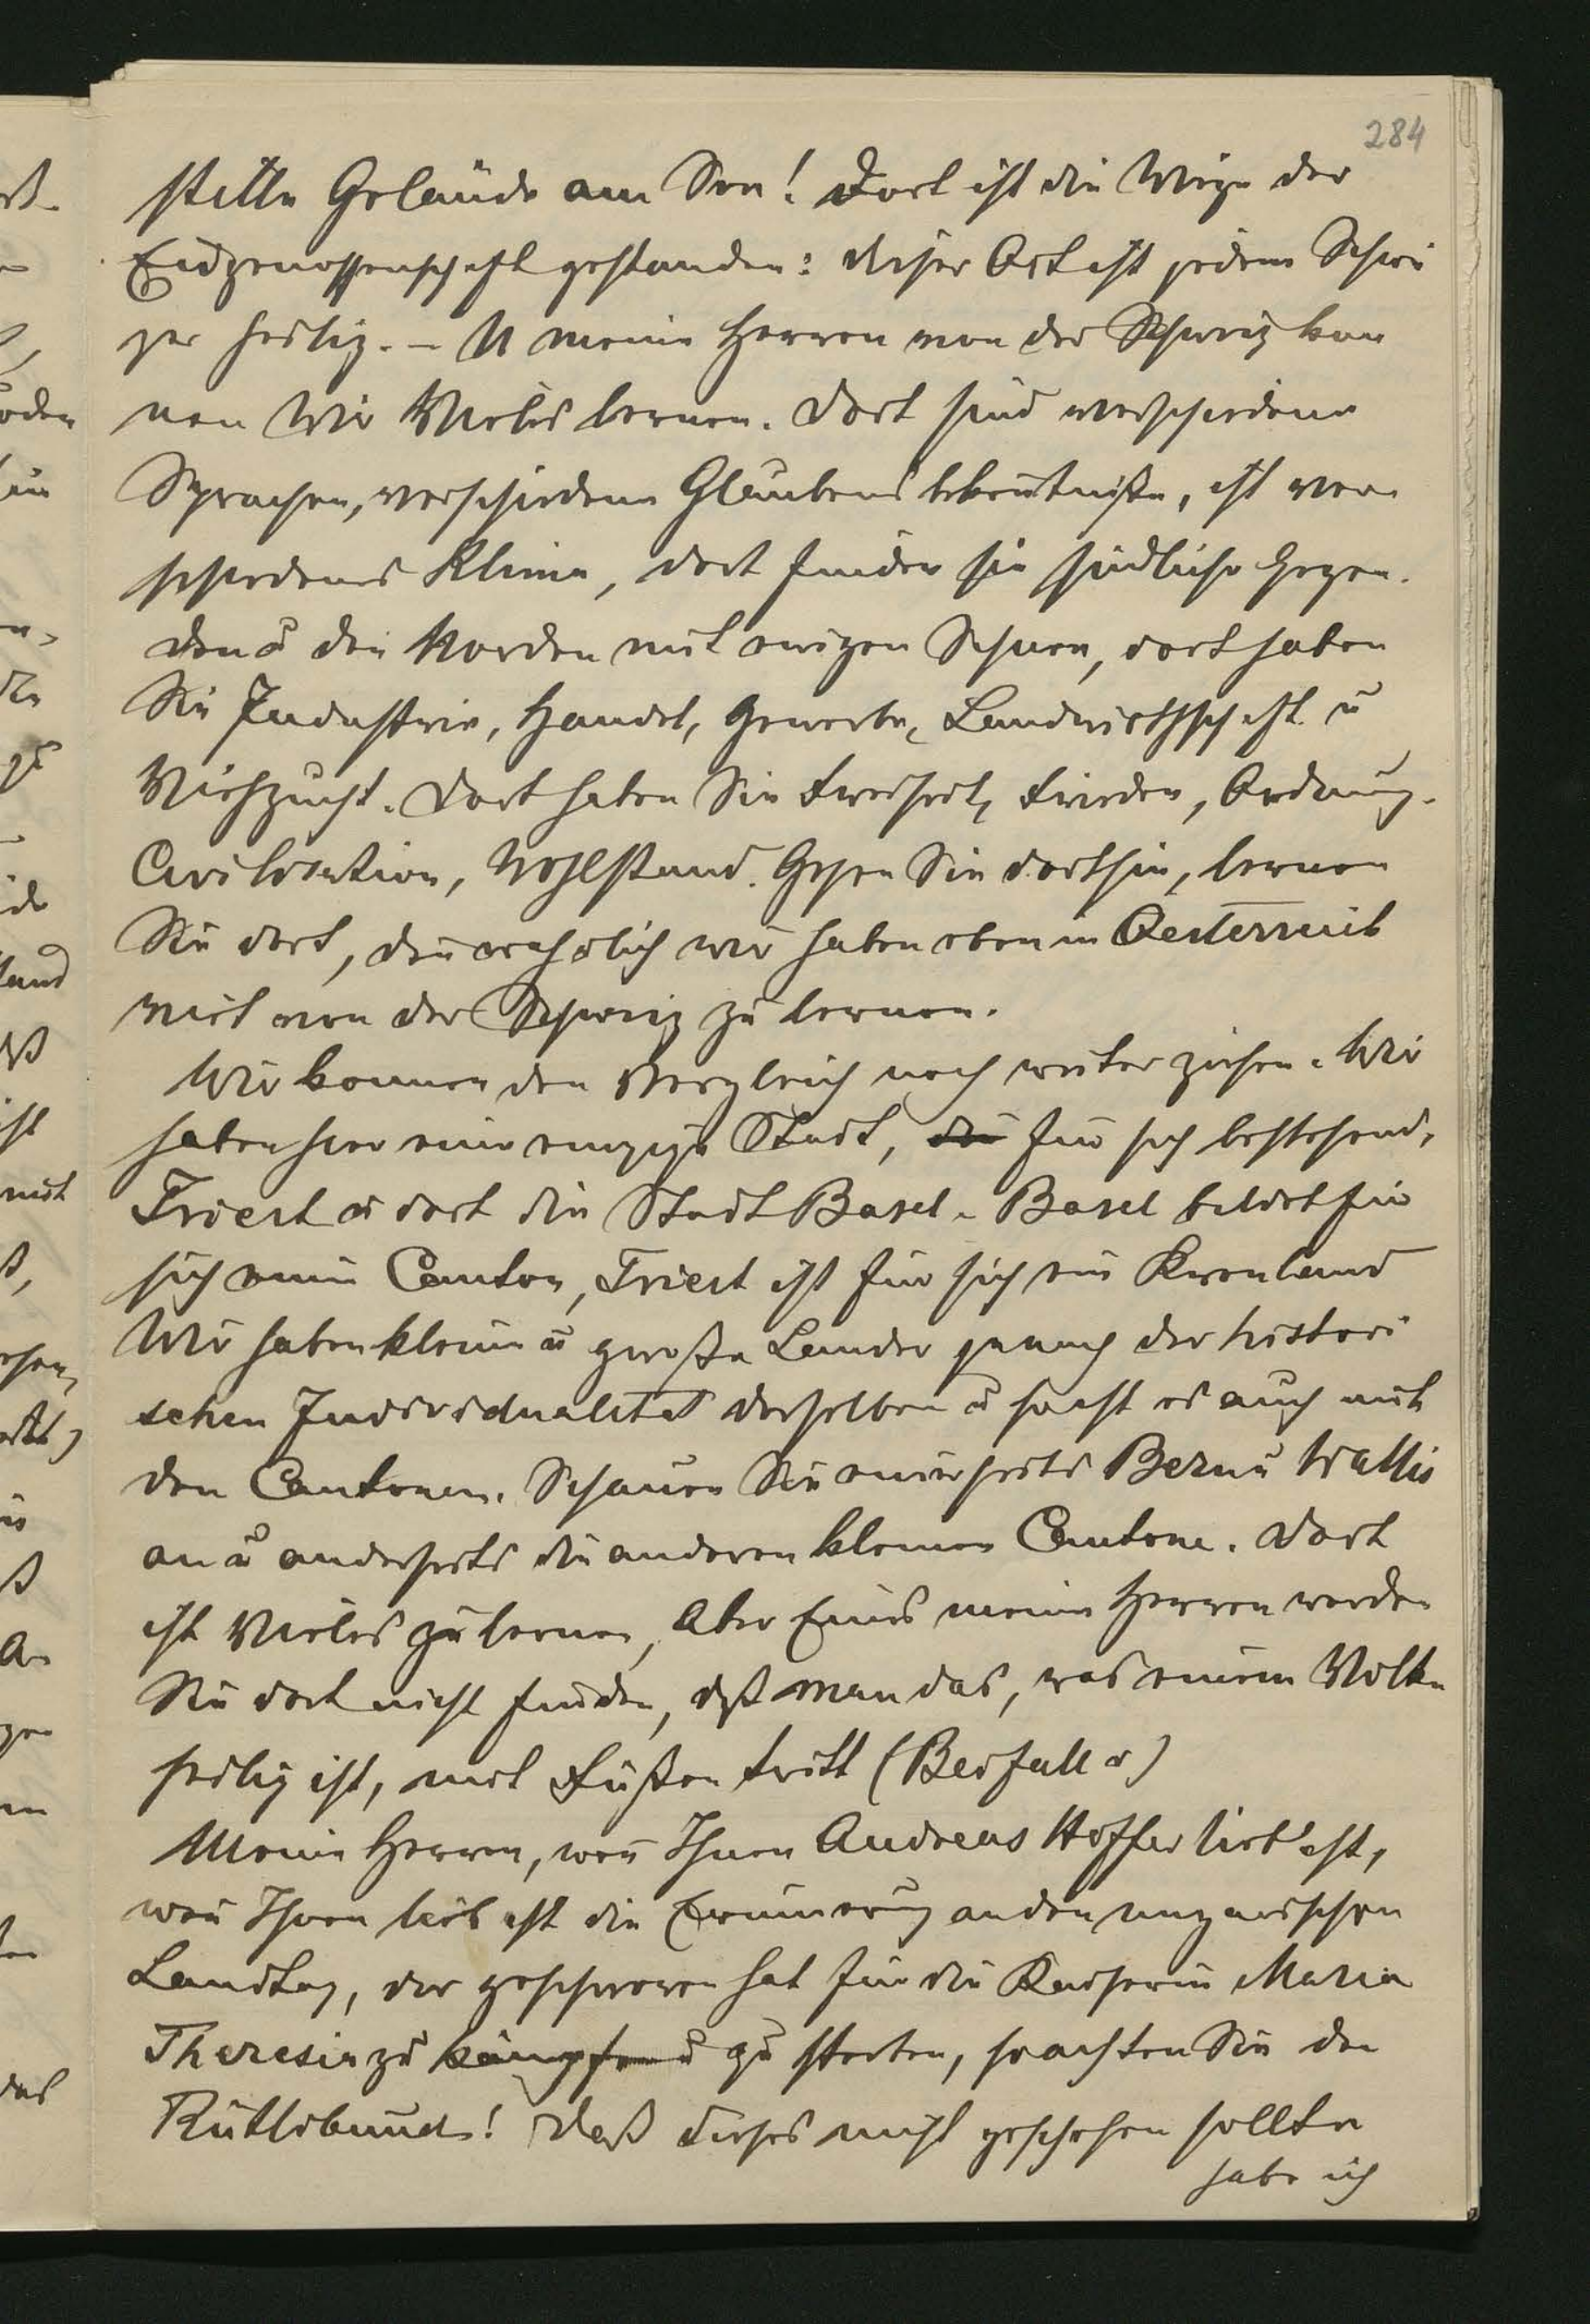 284
stille Gelände am See! Dort ist die Wiege der
Eidgenossenschaft gestanden: dieser Ort ist jedem Schwei
zer heilig. – U meine Herren von der Schweiz kön
nen Wir Vieles lernen. Dort sind verschiedene
Sprachen, verschiedene Glaubensbekentniße, ist ver
schiedenes Klima, dort finden sie südliche Gegen-
den u den Norden mit ewigen Schnee, dort haben
Sie Industrie, Handel, Gewerbe, Landwirthschaft u
Viehzucht. Dort haben Sie Freiheit, Frieden, Ordnung.
Civilisation, Wohlstand. Gehen Sie dorthin, lernen
Sie dort, den wahrlich wir haben eben in Oesterreich
viel von der Schweiz zu lernen.
Wir können den Vergleich noch weiter ziehen. Wir
haben hier eine einzige Stadt, die für sich bestehend,
Triest u dort die Stadt Basel. Basel bildet für
sich einen Canton, Triest ist für sich ein Kronland
Wir haben kleine u große Länder je nach der histori
schen Individualität derselben u so ist es auch mit
den Cantonen. Schauen Sie einerseits Bern u Wallis
an u anderseits die anderen kleinen Cantone. Dort
ist Vieles zu lernen, Aber Eines meine Herren werden
Sie dort nicht finden, daß man das, was einem Volke
heilig ist, mit Füßen tritt (Beifall r)
Meine Herren, wen Ihnen Andreas Hoffer lieb ist,
wen Ihnen lieb ist die Erinnerung an den ungarischen
Landtag, der geschworen hat für die Kaiserin Maria
Theresia zu kämpfen u zu sterben, so achten Sie den
Rütlibund! Daß dieses nicht geschehen sollte
habe ich